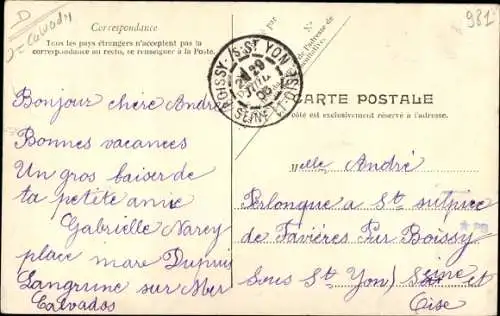 D
= Calvados
981
Correspondance
Tous les pays étrangers n'acceptent pas la
correspondance au recto, se renseigner à la Poste.
BOISSY-S-ST YON
JUIL
05
SEINE-ET-OISE
CARTE POSTALE
côté est exclusivement réservé à l'adresse.
Bonjour chère André
Bonnes vacances
Un gros baiser de
ta petite amie
Gabrielle Narcy
place mare Dupuis
Langrune sur Mer
Calvados
Melle André
Perlonque a St sulpice
de Favières Par Boissy
Sous St Yon) Seine et
Oise